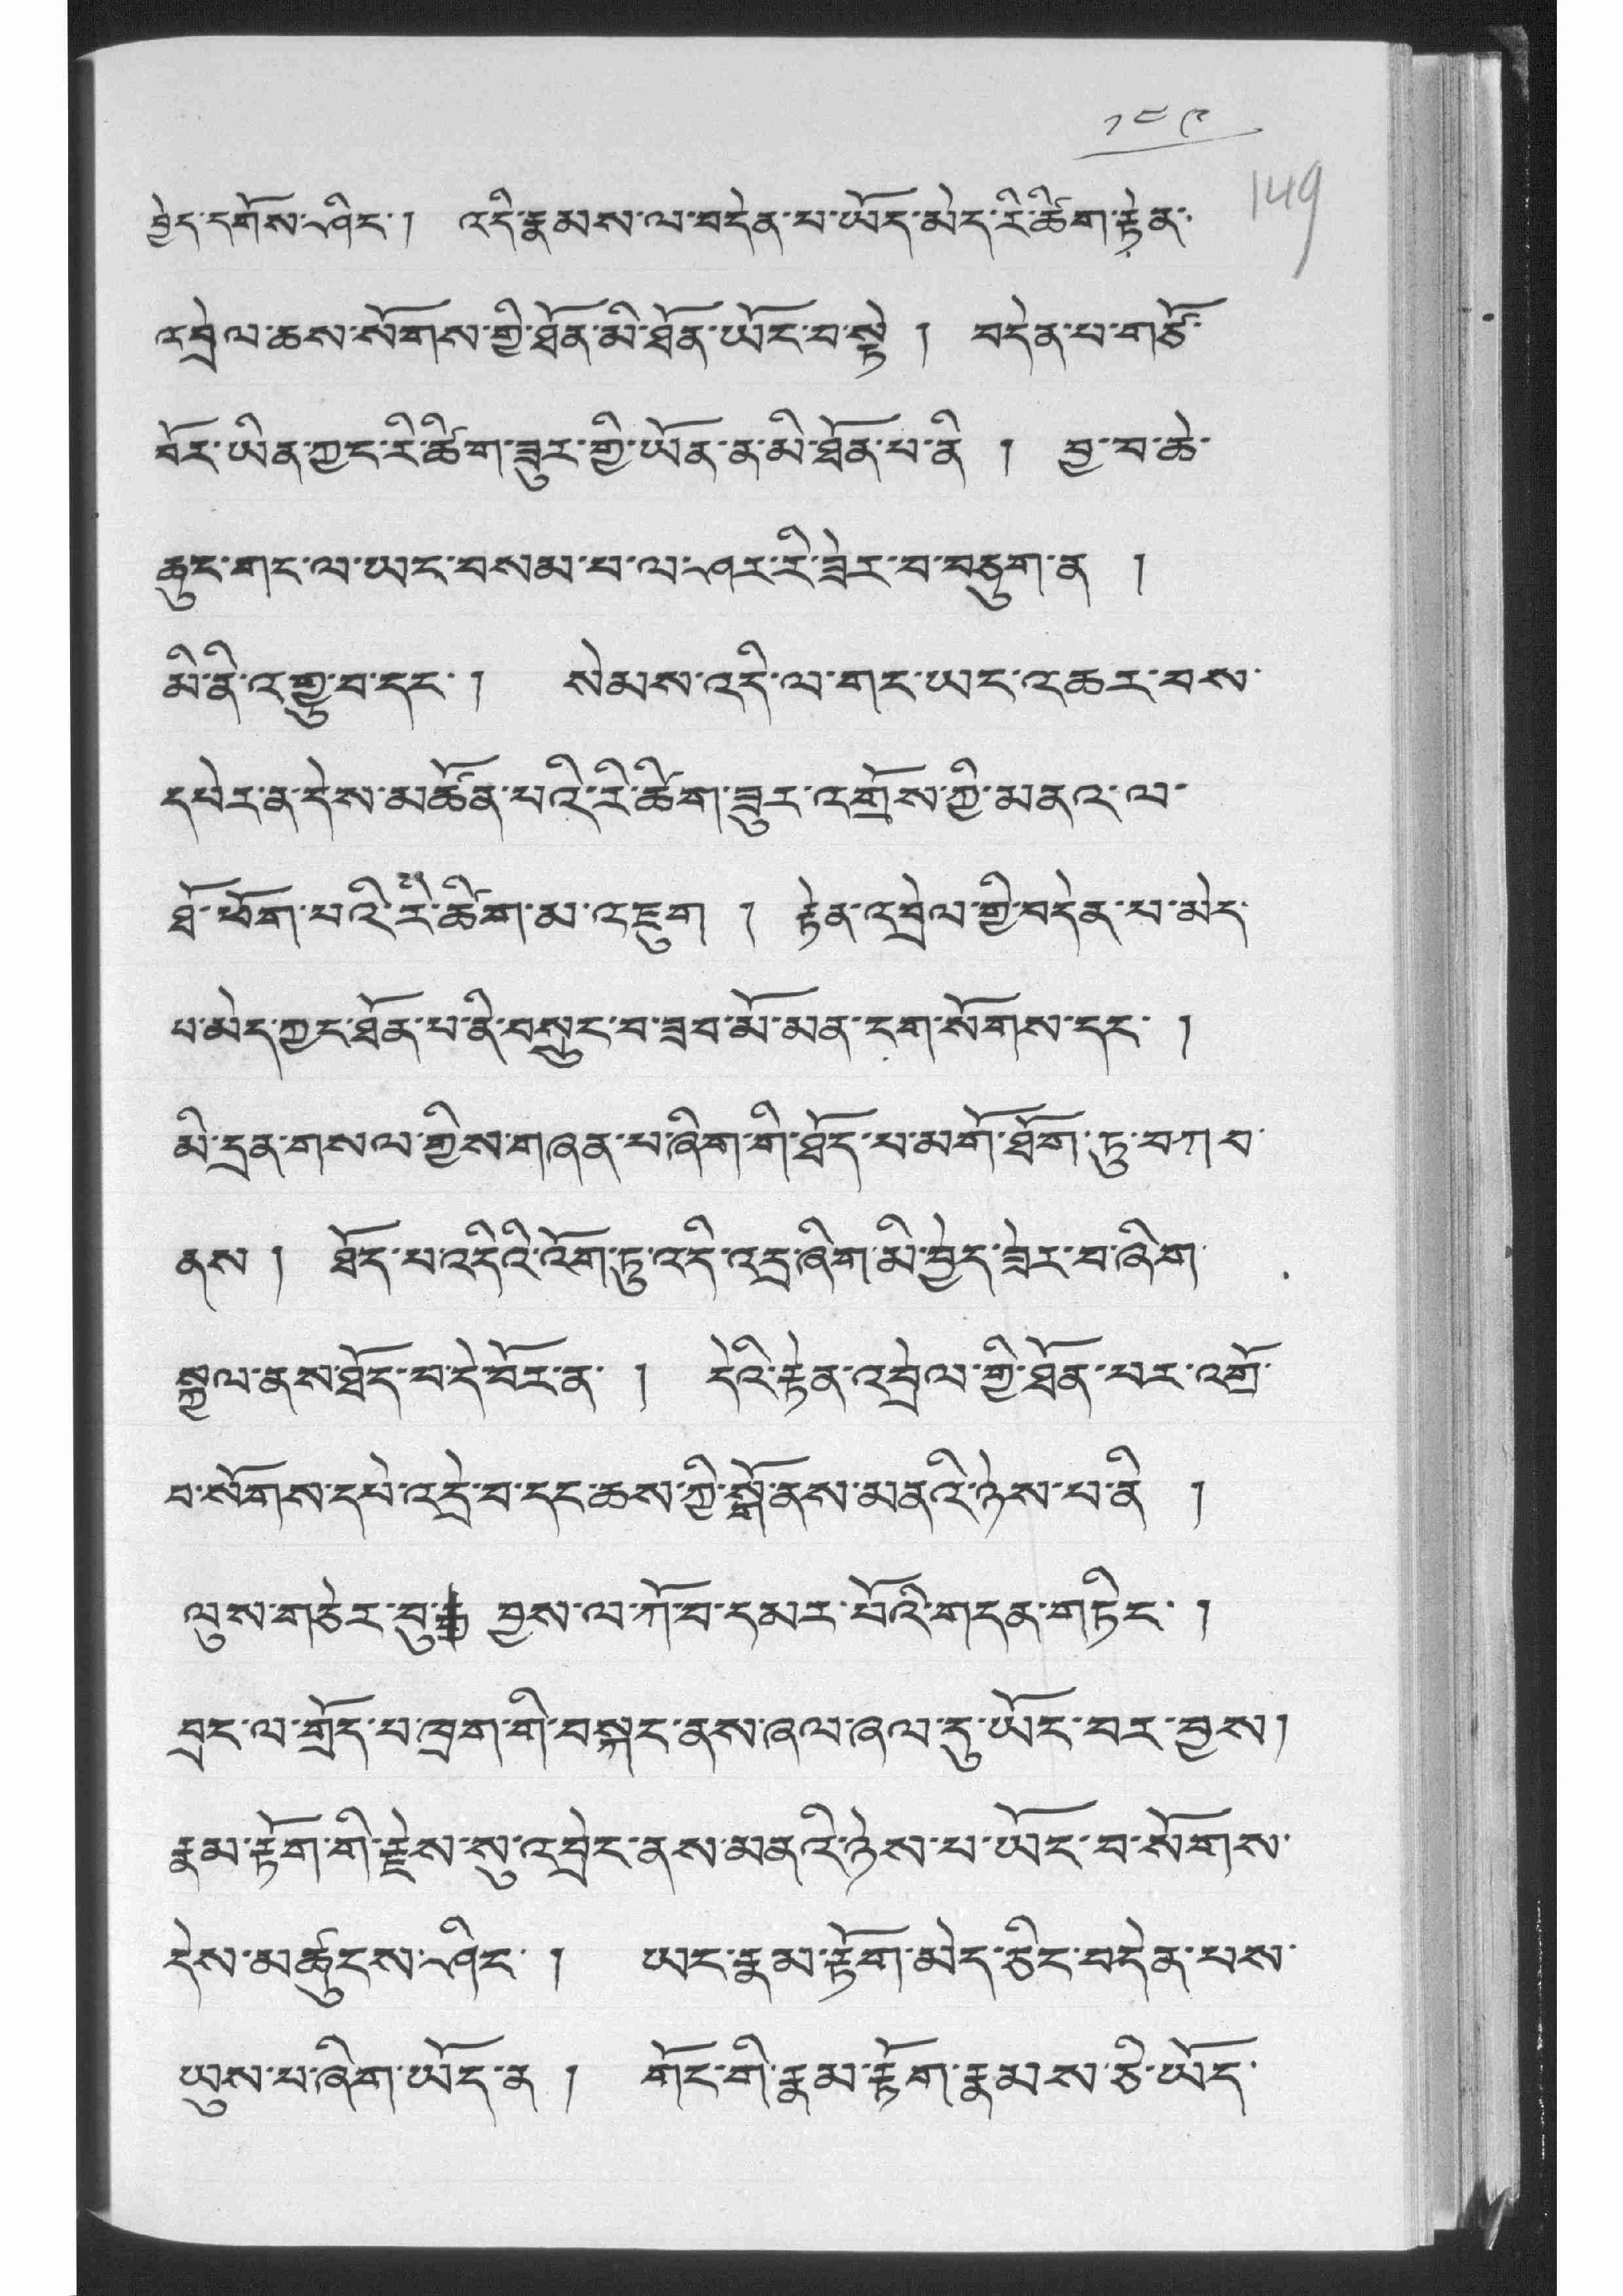 ༡༤༩
149
བྱེད་དགོས་ཤིང་། འདི་རྣམས་ལ་བདེན་པ་ཡོད་མེད་རི་ཚིག་རྟེན་
འབྲེལ་ཆས་སོགས་ཀྱི་ཐོན་མི་ཐོན་ཡོང་བ་སྟེ། བདེན་པ་གཙོ་
བོར་ཡིན་ཀྱང་རི་ཚིག་ཟུར་གྱི་ཡོན་ན་མི་ཐོན་པ་ནི། བྱ་བ་ཆེ་
ཆུང་གང་ལ་ཡང་བསམ་པ་ལ་ཤར་རི་ཟེར་བ་བཅུག་ན །
མི་ནི་འགྱུ་བ་དང་། སེམས་འདི་ལ་གང་ཡང་འཆར་བས་
དཔེར་ན་དེས་མཚོན་པའི་རི་ཚིག་ཟུར་འགྲོས་ཀྱི་མནའ་ལ་
ཐོ་ཕོག་པའི་རི་ཚིག་མ་འཇུག །རྟེན་འབྲེལ་གྱི་བདེན་པ་མེད་
པ་མེད་ཀྱང་ཐོན་པ་ནི་བསྲུང་བ་ཟབ་མོ་མན་ངག་སོགས་དང་།
མི་དྲན་གསལ་གྱིས་གཞན་པ་ཞིག་གི་ཐོད་པ་མགོ་ཐོག་ཏུ་བཀབ་
ནས། ཐོད་པ་འདིའི་འོག་ཏུ་འདི་འདྲ་ཞིག་མི་བྱེད་ཟེར་བ་ཞིག་
སྐྱལ་ནས་ཐོད་པ་དེ་བོར་ན་། དེའི་རྟེན་འབྲེལ་གྱི་ཐོན་པར་འགྲོ་
བ་སོགས་དཔེ་འདྲེ་བ་དང་ཆས་ཀྱི་སྒོ་ནས་མནའི་ཉེས་པ་ནི །
ལུས་གཅེར་བུ་ བྱས་ལ་ཀོ་བ་དམར་པོའི་གདན་གཏིང་།
བྲང་ལ་གྲོད་པ་ཁྲག་གི་བསྐང་ནས་ཞལ་ཞལ་དུ་ཡོང་བར་བྱས།
རྣམ་རྟོག་གི་རྗེས་སུ་འབྲེང་ནས་མནའི་ཉེས་པ་ཡོང་བ་སོགས་
དེས་མཚུངས་ཤིང་། ཡང་རྣམ་རྟོག་མེད་ཅིང་བདེན་པས་
ཡུས་པ་ཞིག་ཡོད་ན། གོང་གི་རྣམ་རྟོག་རྣམས་ཅི་ཡོད་